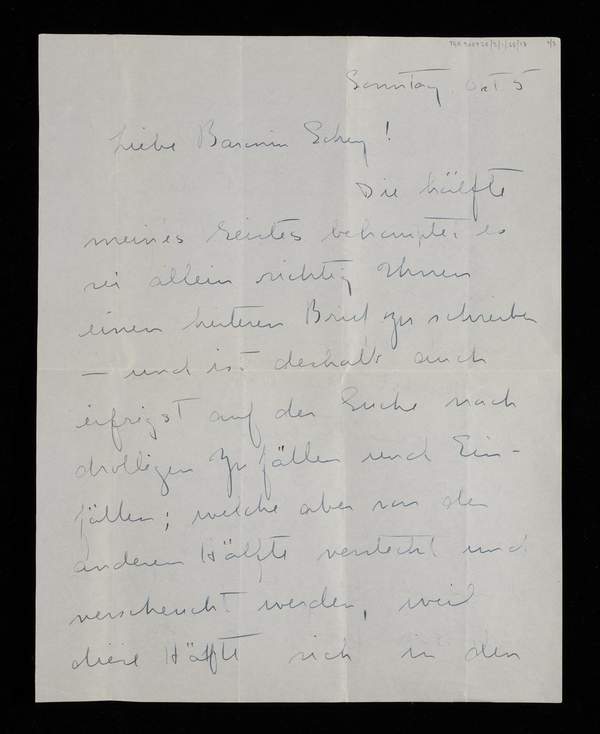 Sonntag Oct 5
Liebe Baronin Schey!
Die Hälfte
meines Geistes behauptet es
sei allein richtig Ihnen
einen heiteren Brief zu schreiben
— und ist deshalb auch
eifrigst auf der Suche nach
drolligen Zufällen und Ein-
fällen; welche aber von der
anderen Hälfte versteckt und
verscheucht werden, weil
diese Hälfte sich in den